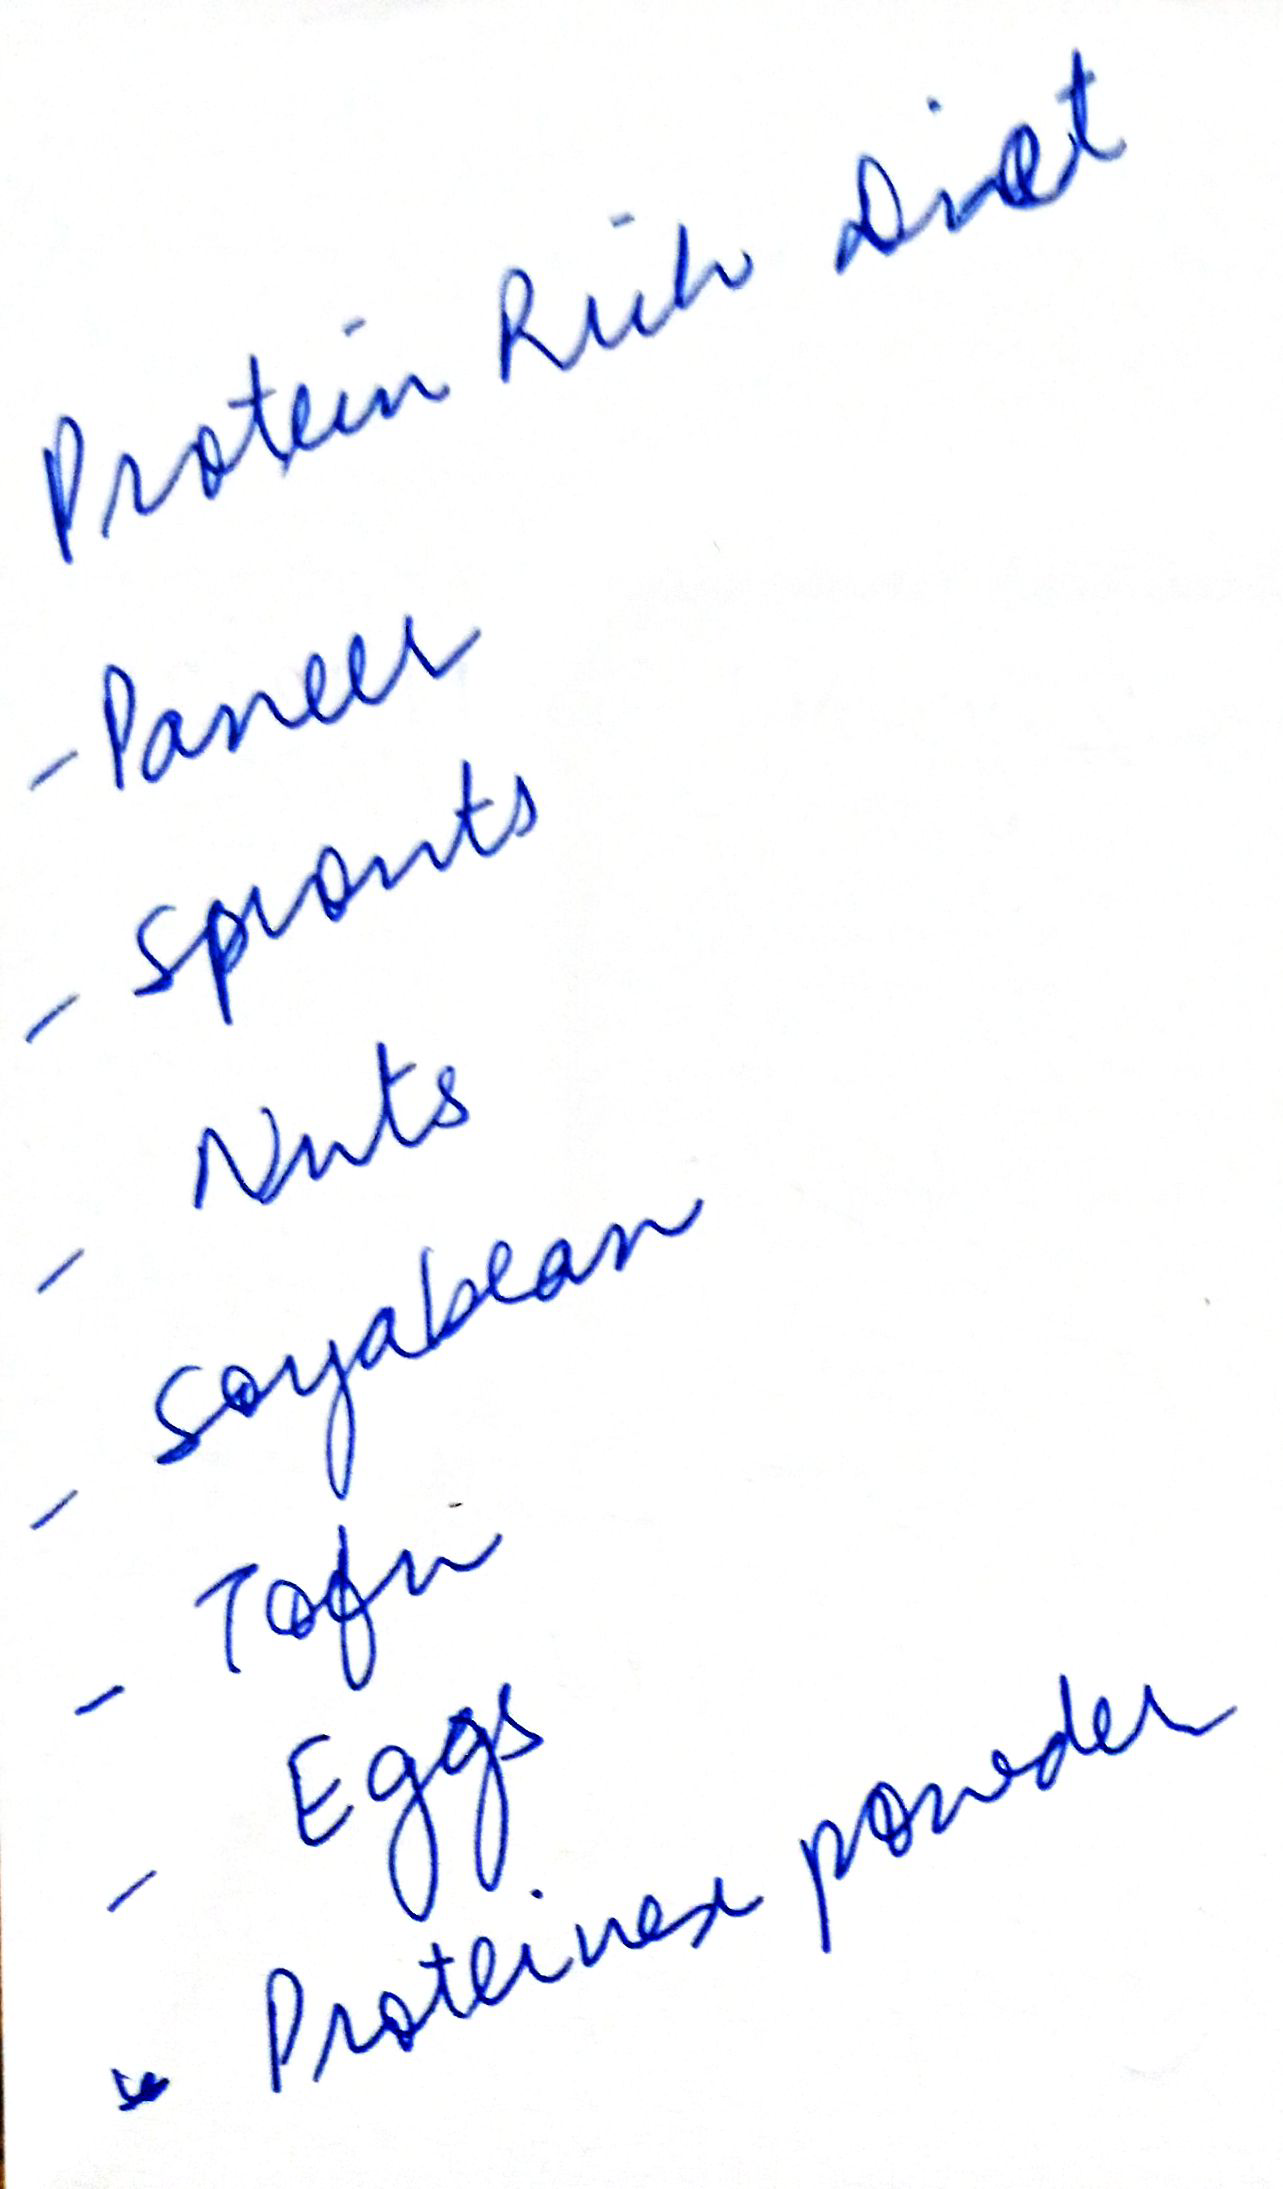 Protein Rich Diet
- Paneer
- Sprouts
- Nuts
- Soyabean
- Tofu
- Eggs
* Proteinex powder